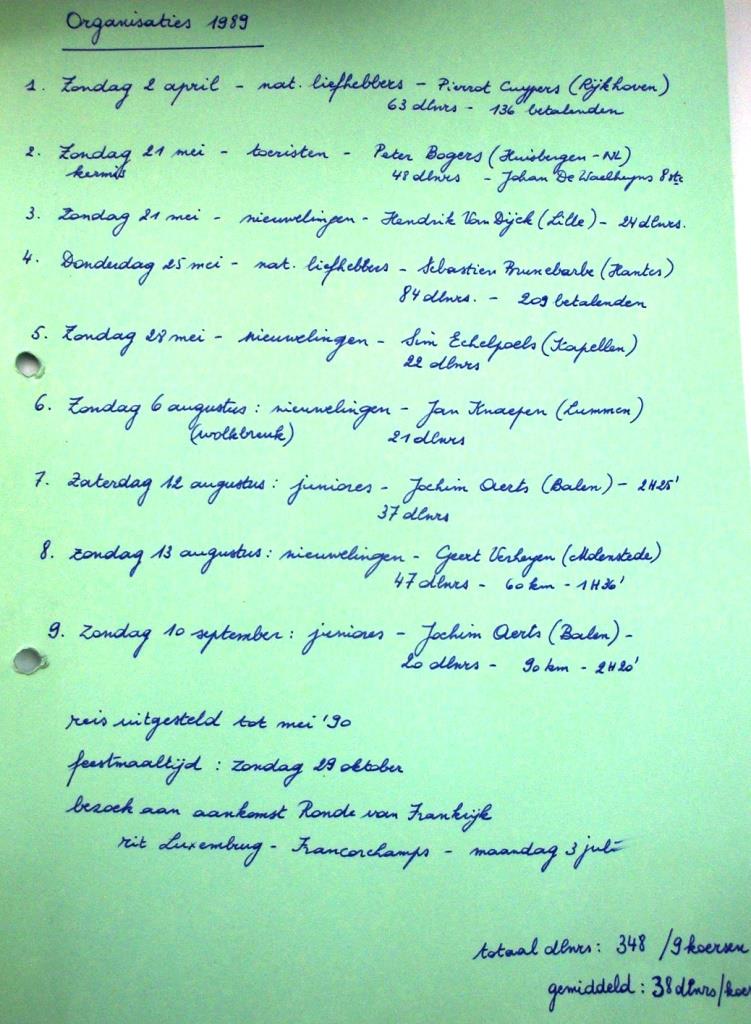 Organisaties 1989
1. Zondag 2 april - nat. liefhebbers - Pierrot Cuypers (Rijkhoven)
63 dlnrs - 136 betalenden
2. Zondag 21 mei - toeristen - Peter Bogers (Huisbergen - NL)
kermis 48 dlnrs - Johan De Waelheyns 8ste
3. Zondag 21 mei - nieuwelingen - Hendrik Van Dijck (Lille) - 24 dlnrs.
4. Donderdag 25 mei - nat. liefhebbers - Sebastien Brunebarbe (Hantes)
84 dlnrs. - 209 betalenden
5. Zondag 28 mei - nieuwelingen - Sim Echelpoels (Kapellen)
22 dlnrs
6. Zondag 6 augustus : nieuwelingen - Jan Knaepen (Lummen)
(wolkbreuk) 21 dlnrs
7. Zaterdag 12 augustus : juniores - Jochim Aerts (Balen) - 2H25'
37 dlnrs
8. zondag 13 augustus : nieuwelingen - Geert Verheyen (Molenstede)
47 dlnrs - 60 km - 1H36'
9. Zondag 10 september : juniores - Jochim Aerts (Balen) -
20 dlnrs - 90 km - 2H20'
reis uitgesteld tot mei '90
feestmaaltijd : zondag 29 oktober
bezoek aan aankomst Ronde van Frankrijk
rit Luxemburg - Francorchamps - maandag 3 juli
totaal dlnrs : 348 / 9 koersen
gemiddeld : 38 dlnrs/koe